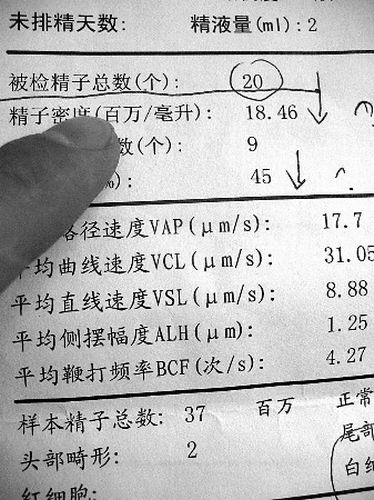 未排精天数: 精液量(ml):2
被检精子总数(个): 20
精子密度(百万/毫升): 18.46
数(个): 9
%): 45
径速度VAP(μm/s): 17.7
平均曲线速度VCL(μm/s): 31.05
平均直线速度VSL(μm/s): 8.88
平均侧摆幅度ALH(μm): 1.25
平均鞭打频率BCF(次/s): 4.27
样本精子总数: 37 百万 正常
尾部
头部畸形: 2
白细
红细胞: